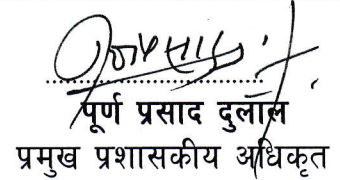 पूर्ण प्रसाद दुलाल
प्रमुख प्रशासकीय अधिकृत